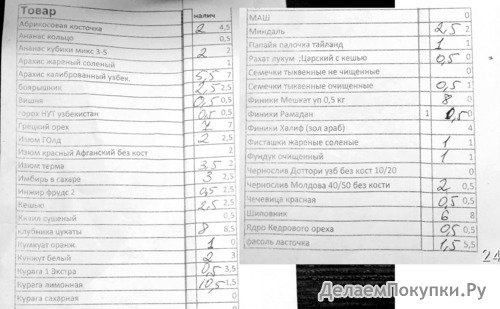 Товар налич
Абрикосовая косточка 2 4,5
Ананас кольцо 0,5
Ананас кубики микс 3-5 2 2
Арахис жареный соленый 1
Арахис калиброванный узбек. 5,5 7
боярышник 2,5 2,5
Вишня 0,5 0,5
горох НУТ узбекистан 0,5 0,5
Грецкий орех 7 7
Изюм ГОлд 2 2,5
Изюм красный Афганский без кост 2
Изюм терма 3,5 2
Имбирь в сахаре 3 2,5
Инжир фрудс 2 0,5 2,5
Кешью 2,5 2,5
Кизил сушеный 0,5
клубника цукаты 8 8,5
Кумкуат оранж. 1 0
Кунжут белый 2 3
Курага 1 Экстра 0,5 3,5
Курага лимонная 10,5 1,5
Курага сахарная 0
МАШ 0
Миндаль 2,5 2
Папайя палочка тайланд 1 1
Рахат лукум ,Царский с кешью 0,5 0
Семечки тыквенные не чищенные 0
Семечки тыквенные очищенные 0,5 1
Финики Мешкат уп 0,5 кг 8 0
Финики Рамадан 1 0,5 0
Финики Халиф (зол араб) 4
Фисташки жареные соленые 1 1
Фундук очищенный 1 1
Чернослив Доттори узб без кост 10/20 0
Чернослив Молдова 40/50 без кости 2 0,5
Чечевица красная 0,5 0,5
Шиповник 6 8
Ядро Кедрового ореха 0,5 0,5
фасоль ласточка 1,5 5,5
24
ДелаемПокупки.Ру